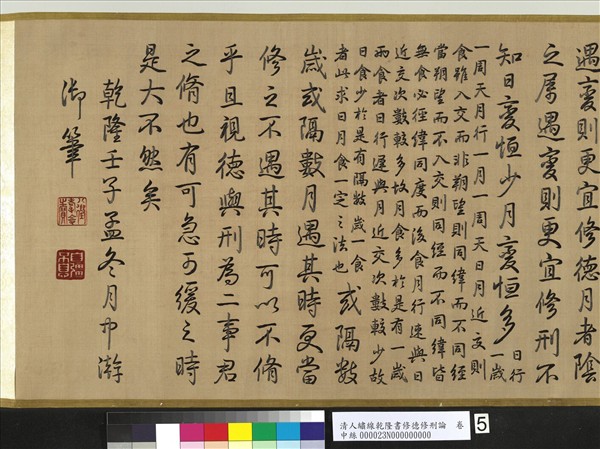 遇變則更宜修德月者陰
之屬遇變則更宜修刑不
知日變恒少月變恒多日行
一歲
一周天月行一月一周天日月近交則
食雖入交而非朔望則同緯而不同經
當朔望而不入交則同經而不同緯皆
無食必經緯同度而後食月行速與日
近交次數較多故月食多於是有一歲
兩食者日行遲與月近交次數較少故
日食少於是有隔數歲一食
者此求日月食一定之法也
或隔數
歲或隔數月遇其時更當
修之不遇其時可以不脩
乎且視德與刑為二事君
之脩也有可急可緩之時
是大不然矣
乾隆壬子孟冬月中澣
御筆
八徵耄念之寶
自強不息
清人繡線乾隆書修德修刑論 卷
中絲 000023N000000000
5